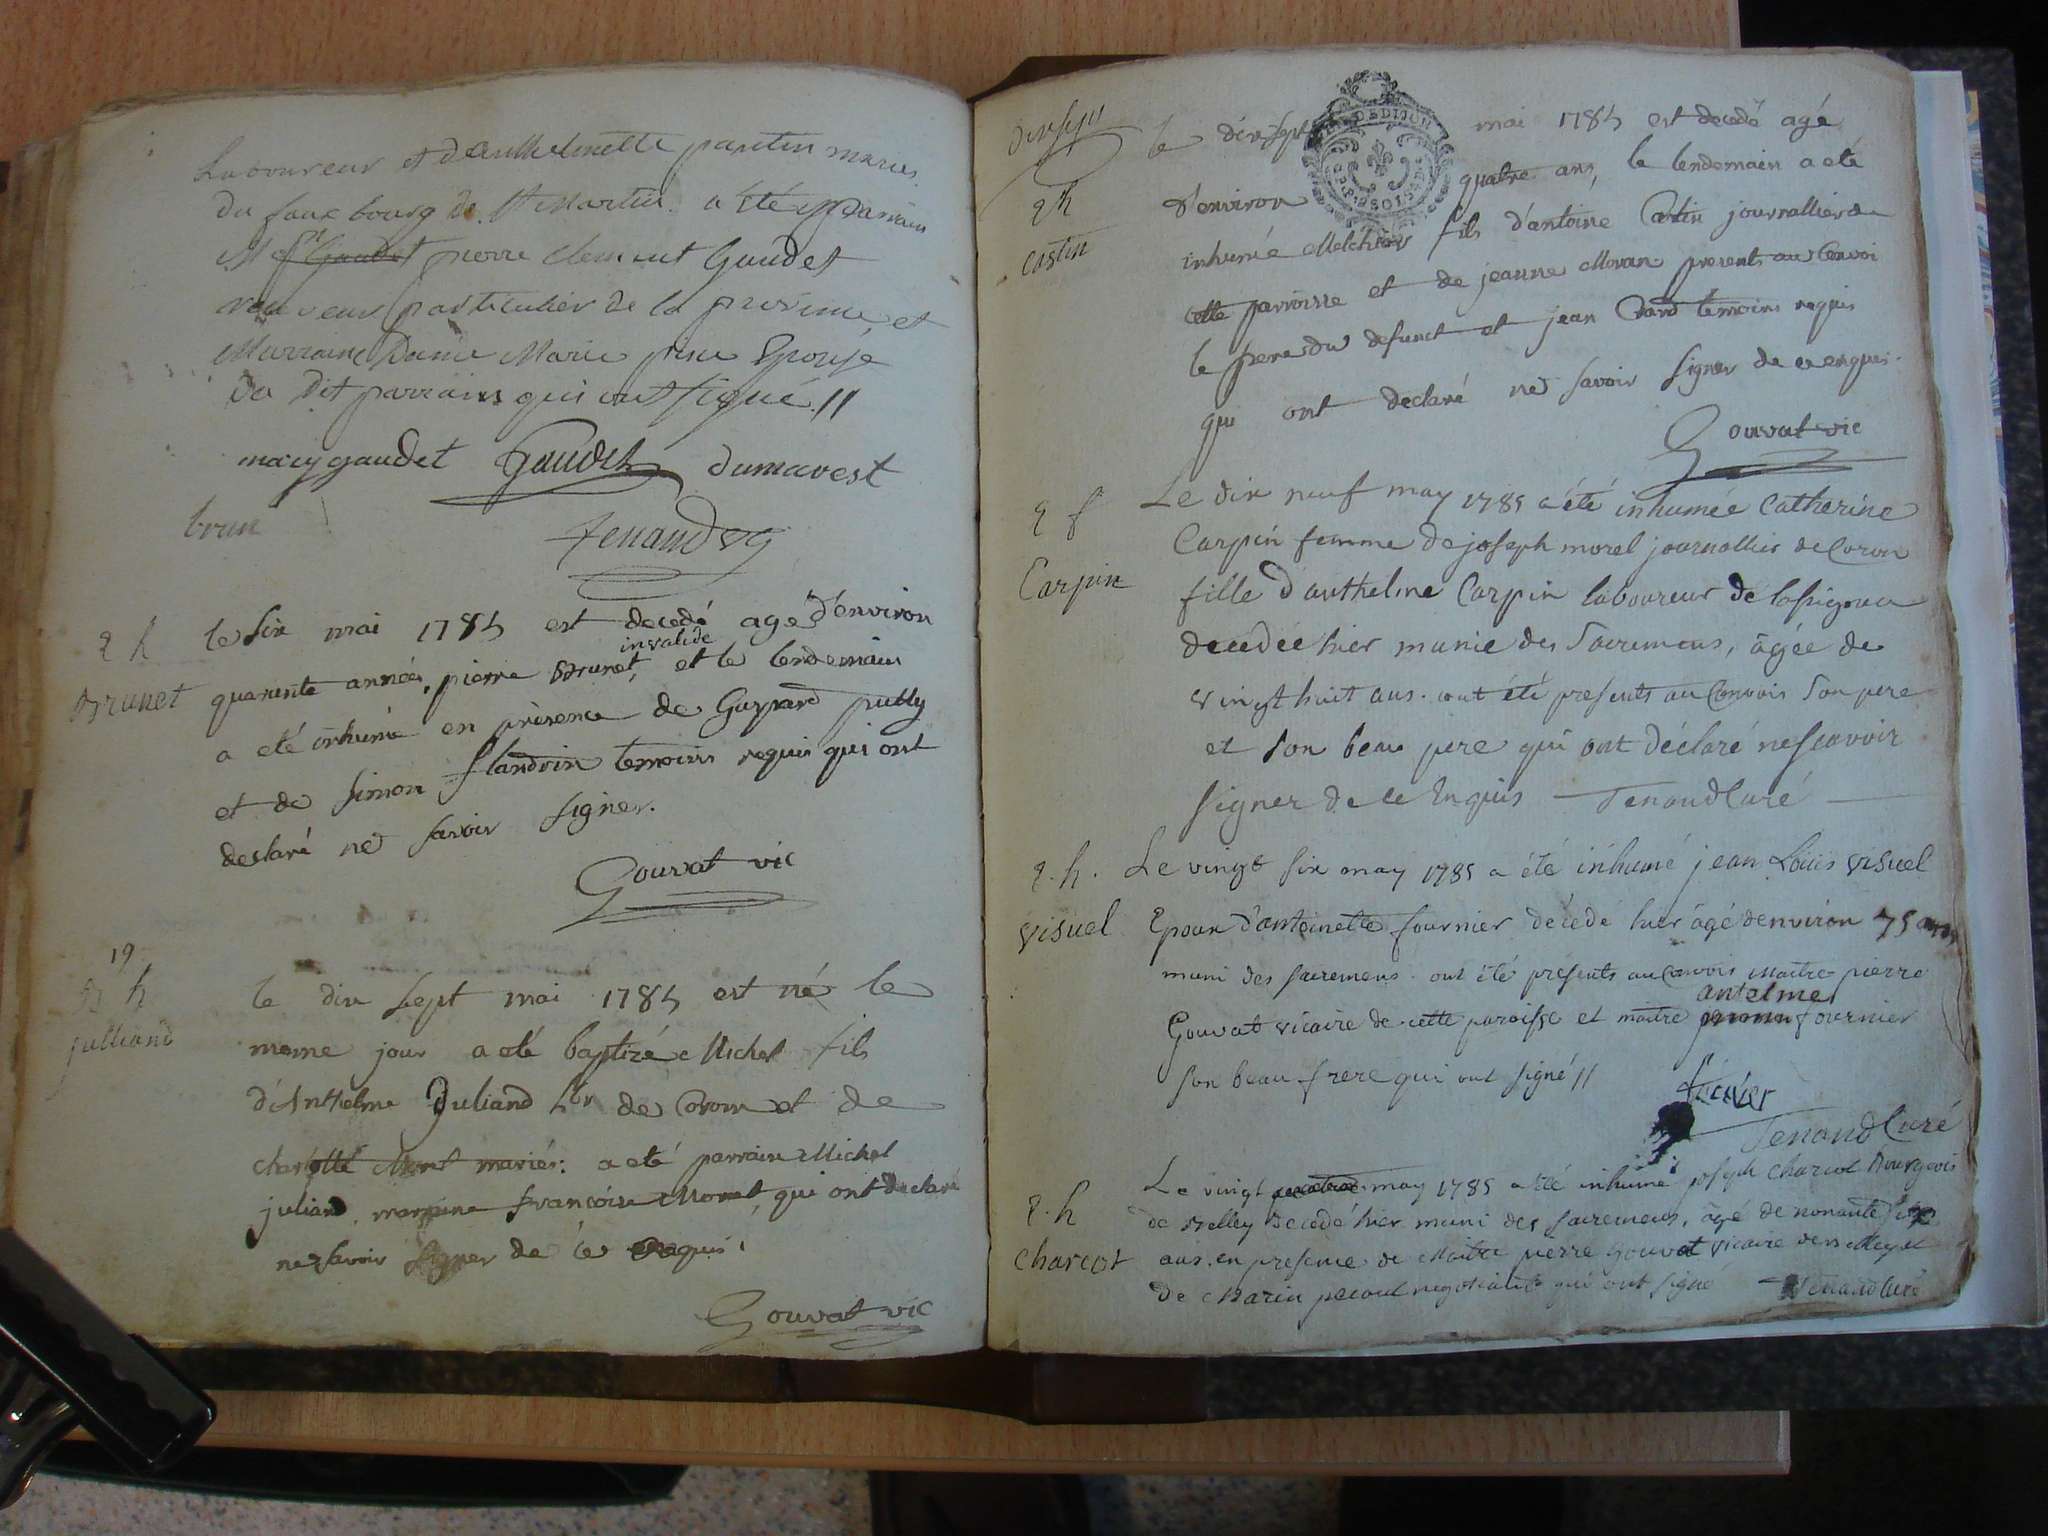 Laboureur et d'Anthelmette pantin mariés
du faux bourg de St Martin a été parrain
Mr pierre clement Gaudet
receveur particulier de la province, et
Marraine Dame Marie Epouse
du dit parrain qui ont signé //
macy gaudet Gaudet dumarest
brun
Tenand
2 h
Brunet
le six mai 1785 est decedé agé d'environ
invalide
quarente années, pierre Brunet, et le lendemain
a eté inhumé en présence de Gaspard pully
et de simon flandrin temoins requis qui ont
declaré ne savoir signer.
Gouvat vic
19
B h
julliand
le dix sept mai 1785 est né le
meme jour a eté baptizé Michel fils
d'Anthelme Juliand lbr de Coron et de
charlotte Moret mariés: a eté parrain Michel
juliand, marraine françoise Moret, qui ont declaré
ne savoir signer de ce Enquis
Gouvat vic
dixsept
2 h
Castin
le dixsept mai 1785 est decedé agé
d'environ quatre ans, le lendemain a eté
inhumé Melchior fils d'antoine Castin journallier de
cette parroisse et de jeanne Moran presents au Convoi
le pere du defunct et jean temoins requis
qui ont declaré ne savoir signer de ce enquis.
Gouvat vic
2 f
Carpin
Le dix neuf may 1785 a été inhumée Catherine
Carpin femme de joseph morel journallier de Coron
fille d'anthelme Carpin laboureur de
decedée hier munie des Sacremens, âgée de
vingt huit ans. ont été presents au Convois son pere
et son beau pere qui ont déclaré ne scavoir
signer de ce Enquis Tenand Curé
2. h.
visuel
Le vingt six may 1785 a été inhumé jean Louis visuel
Epoux d'antoinette fournier décedé hier âgé denviron 75 ans
muni des sacremens. ont été présents au Convois maitre pierre
antelme
Gouvat vicaire de cette paroisse et maitre fournier
son beau-frere qui ont signé //
Tenand Curé
2. h
charcot
Le vingt may 1785 a été inhumé joseph charcot Bourgeois
de Belley decedé hier muni des sacremens, âgé de nonante
ans. en presence de Maitre pierre Gouvat vicaire de Belley et
de Marin pecoul negotiant qui ont signé Tenand Curé